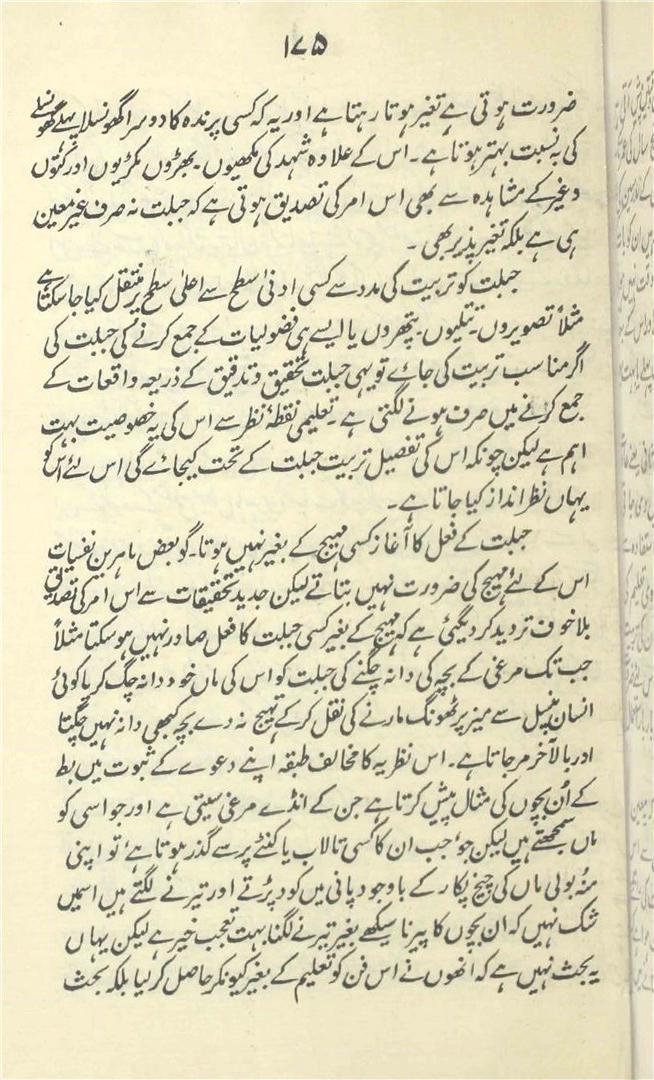 ۱۷۵
ضرورت ہوتی ہے تغیر ہوتا رہتا ہے اور یہ کہ کسی پرندہ کا دوسرا گھونسلا پہلے گھونسلے
کی بہ نسبت بہتر ہوتا ہے۔ اس کے علاوہ شہد کی مکھیوں۔ بھڑوں مکڑیوں اور کتوں
وغیرہ کے مشاہدہ سے بھی اس امر کی تصدیق ہوتی ہے کہ جبلت نہ صرف غیر معین
ہی ہے بلکہ تغیر پذیر بھی ۔
جبلت کو تربیت کی مدد سے کسی ادنیٰ سطح سے اعلیٰ سطح پر منتقل کیا جا سکتا ہے
مثلاً تصویروں۔ تتلیوں۔ پتھروں یا ایسے ہی فضولیات کے جمع کرنے کی جبلت کی
اگر مناسب تربیت کی جائے تو یہی جبلت تحقیق و تدقیق کے ذریعہ واقعات کے
جمع کرنے میں صرف ہونے لگتی ہے۔ تعلیمی نقطۂ نظر سے اس کی یہ خصوصیت بہت
اہم ہے لیکن چونکہ اس کی تفصیل تربیت جبلت کے تحت کیجائے گی اس لئے اس کو
یہاں نظر انداز کیا جاتا ہے۔
جبلت کے فعل کا آغاز کسی مہیج کے بغیر نہیں ہوتا۔ گو بعض ماہرین نفسیات
اس کے لئے مہیج کی ضرورت نہیں بتاتے لیکن جدید تحقیقات سے اس امر کی تصدیق
بلا خوف تردید کر دیگئی ہے کہ مہیج کے بغیر کسی جبلت کا فعل صادر نہیں ہو سکتا مثلاً
جب تک مرغی کے بچہ کی دانہ چگنے کی جبلت کو اس کی ماں خود دانہ چگ کر یا کوئی
انسان پنسل سے میز پر ٹھونگ مارنے کی نقل کر کے تہیج نہ دے بچہ کبھی دانہ نہیں چگتا
اور بالآخر مر جاتا ہے۔ اس نظریہ کا مخالف طبقہ اپنے دعوے کے ثبوت میں بط
کے اُن بچوں کی مثال پیش کرتا ہے جن کے انڈے مرغی سیتی ہے اور جو اسی کو
ماں سمجھتے ہیں لیکن جو جب ان کا کسی تالاب یا کنٹے پر سے گذر ہوتا ہے تو اپنی
منہ بولی ماں کی چیخ پکار کے باوجود پانی میں کود پڑتے اور تیرنے لگتے ہیں اسمیں
شک نہیں کہ ان بچوں کا پیرنا سیکھے بغیر تیرنے لگنا بہت تعجب خیز ہے لیکن یہاں
یہ بحث نہیں ہے کہ انھوں نے اس فن کو تعلیم کے بغیر کیونکر حاصل کر لیا بلکہ بحث